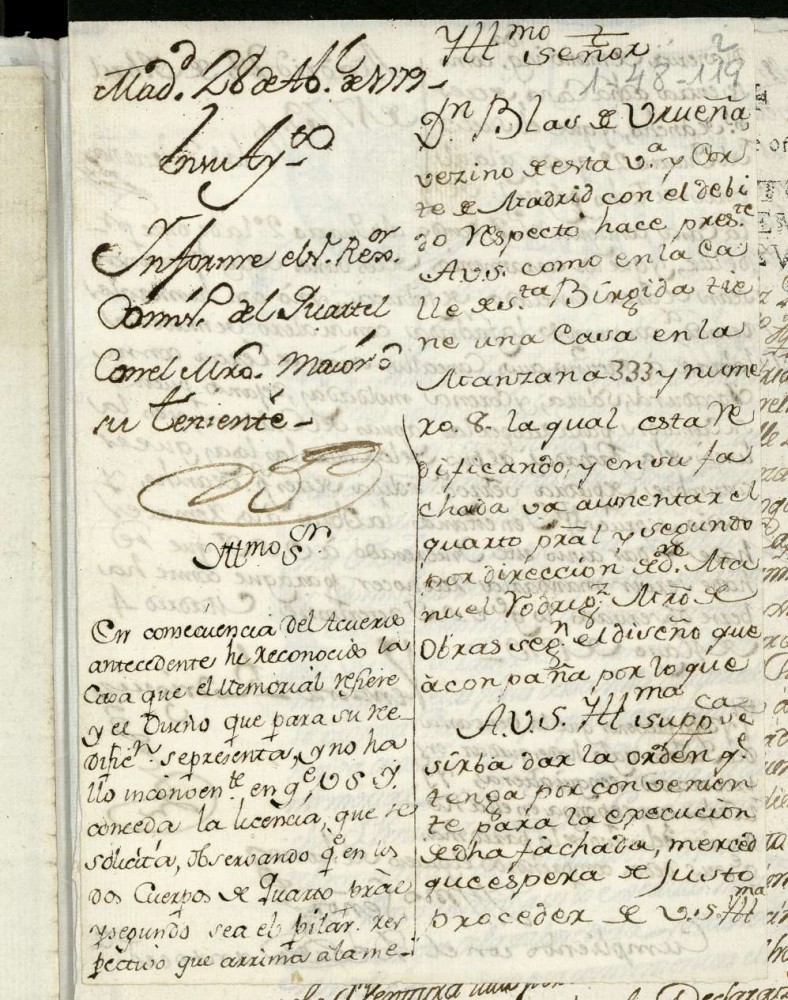 Mad.d 28 de Ab.l de 1779.
En su Ay.to
Informe el S.r Rexo.or
Comis.o del Quartel
Con el Mro. Maior ô
su teniente.
Yllmo S.or
En consecuencia del Acuerdo
antecedente he Reconocido la
Casa que el Memorial refiere
y el Diseño que para su ree-
dific.n se presenta, y no ha
llo inconven.te en q.e V S Y.
conceda la licencia, que se
solicita, observando q.e en los
dos Cuerpos de Quarto pral
y segundo sea el pilar res
pectivo que arrima a la me-
Yllmo Señor
2
1-48-119
D.n Blas de Urueña
vezino de esta V.a y Cor
te de Madrid con el debi
do Respecto hace pres.te
A V.S. como en la Ca
lle de S.ta Birgida tie
ne una Casa en la
Manzana 333 y nume
ro. 8. la qual esta Re
dificando, y en su fa
chada va aumentar el
quarto pral y segundo
por dirección de d.n Ma
nuel Rodrig.z Mro de
Obras seg.n el diseño que
àconpaña por lo que
A V.S. Yllma supp.ca se
sirba dar la orden q.e
tenga por convenien
te para la execucion
de dha fachada, merced
que espera de Justo
proceder de V.S. Yllma